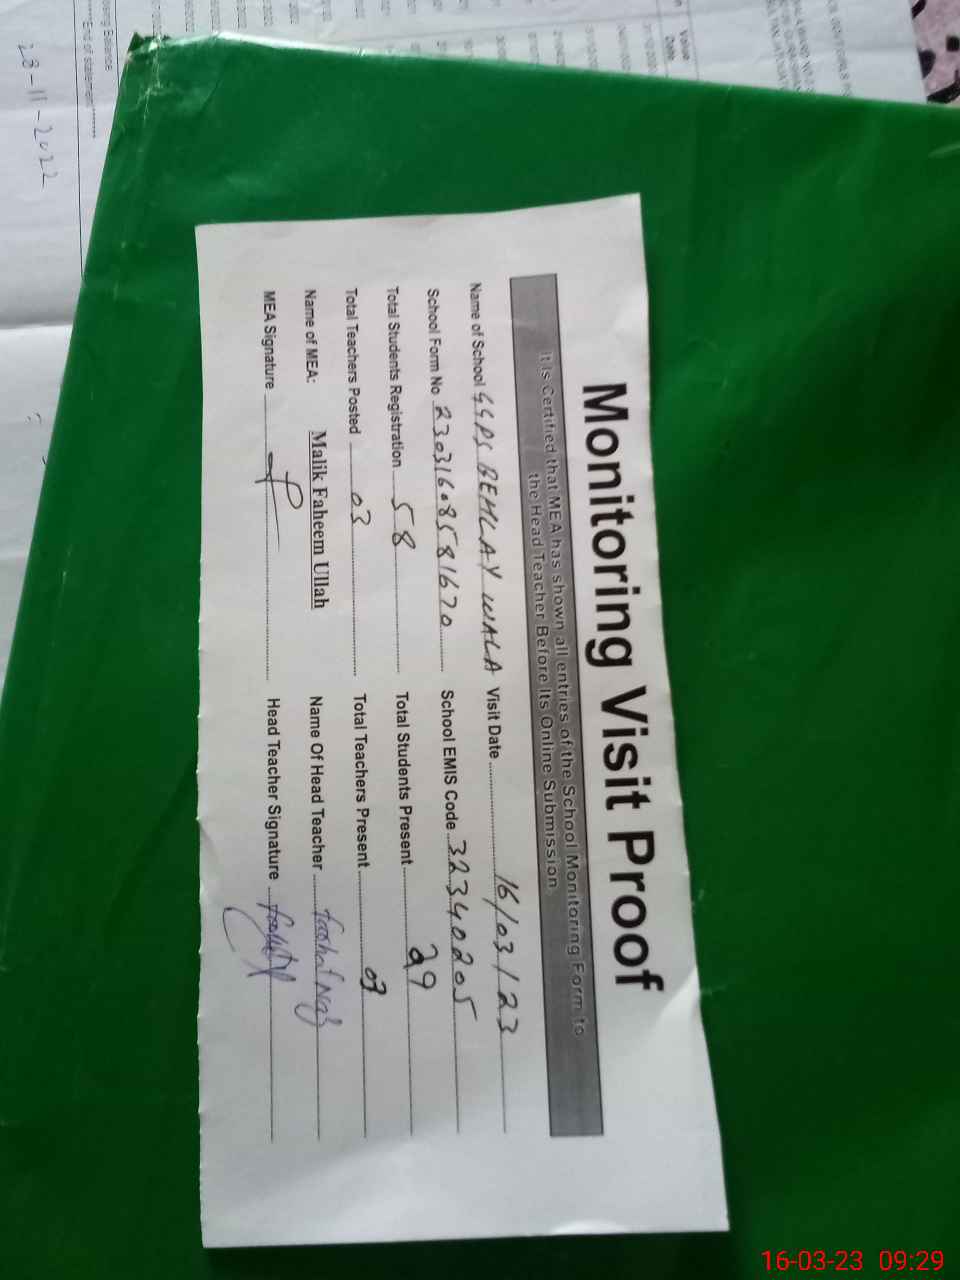 Monitoring Visit Proof
It Is Certified that MEA has shown all entries of the School Monitoring Form to
the Head Teacher Before Its Online Submission
Name of School GGPS BEHLAY WALA Visit Date 16/03/23
School Form No 23031608581670 School EMIS Code 32340205
Total Students Registration 58 Total Students Present 29
Total Teachers Posted 03 Total Teachers Present 03
Name of MEA: Malik Faheem Ullah Name Of Head Teacher
MEA Signature Head Teacher Signature
28-11-2022
Value
Date
Balance
***End of statement***
16-03-23 09:29